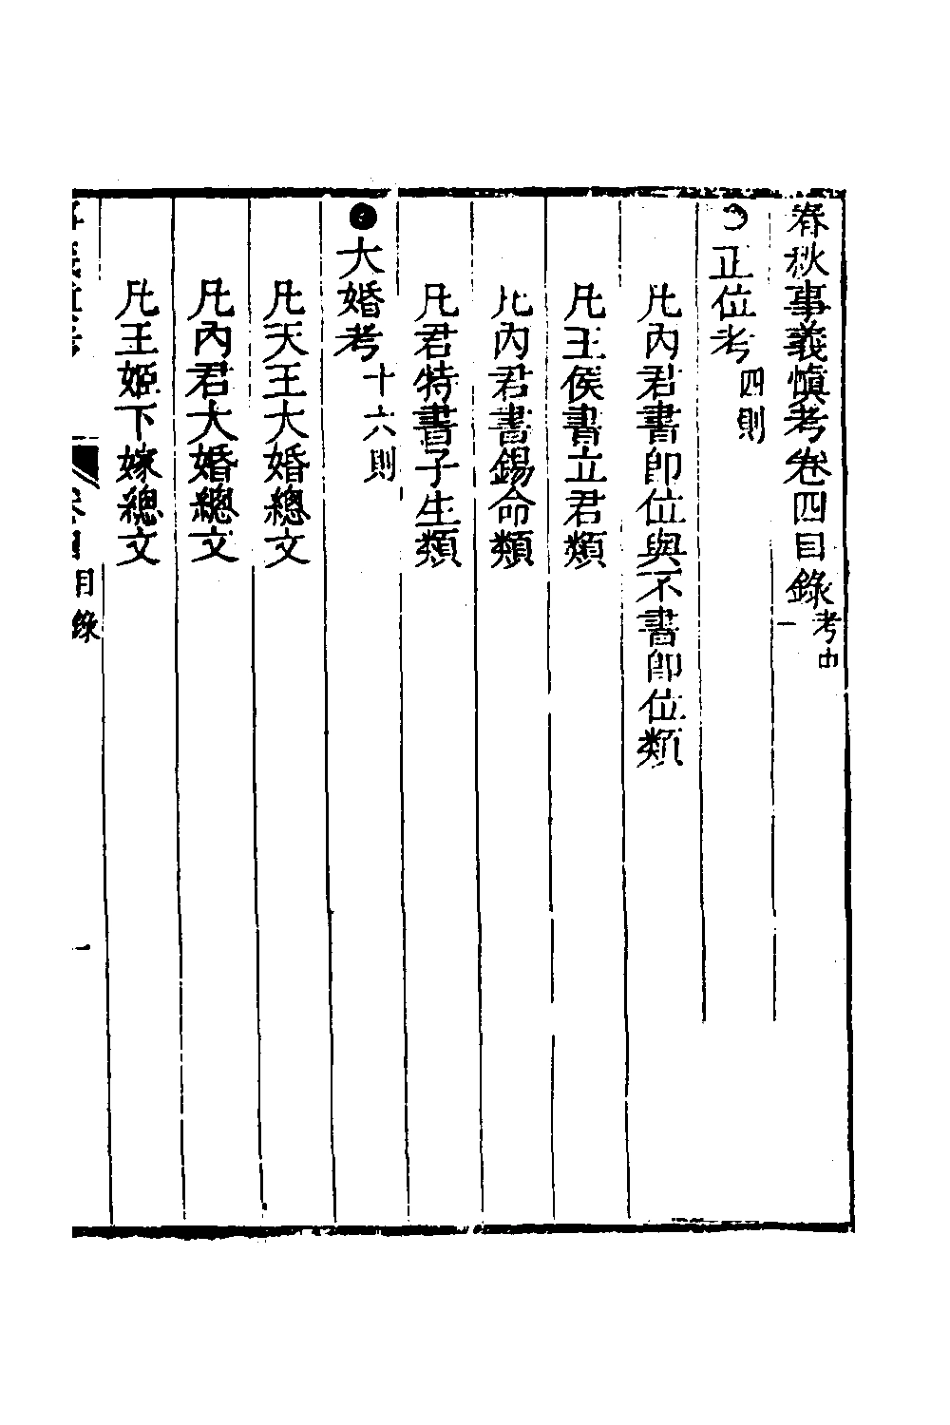 春秋事義慎考卷四目錄考中一
正位考四則
凡內君書即位與不書即位類
凡王侯書立君類
凡內君書錫命類
凡君特書子生類
大婚考十六則
凡天王大婚總文
凡內君大婚總文
凡王姬下嫁總文
目錄
一